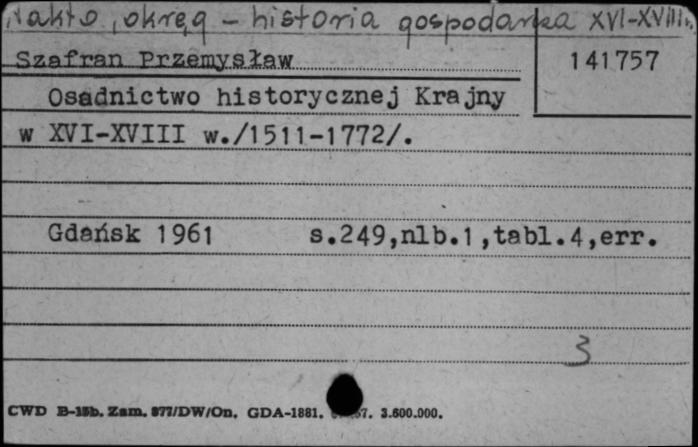 Nakło, okręg - historia gospodarcza XVI-XVIII w.
Szafran Przemysław
141757
Osadnictwo historycznej Krajny
w XVI-XVIII w./1511-1772/.
Gdańsk 1961 s.249,nlb.1,tabl.4,err.
3
CWD B-15b. Zam. 877/DW/On. GDA-1881. 57. 3.600.000.